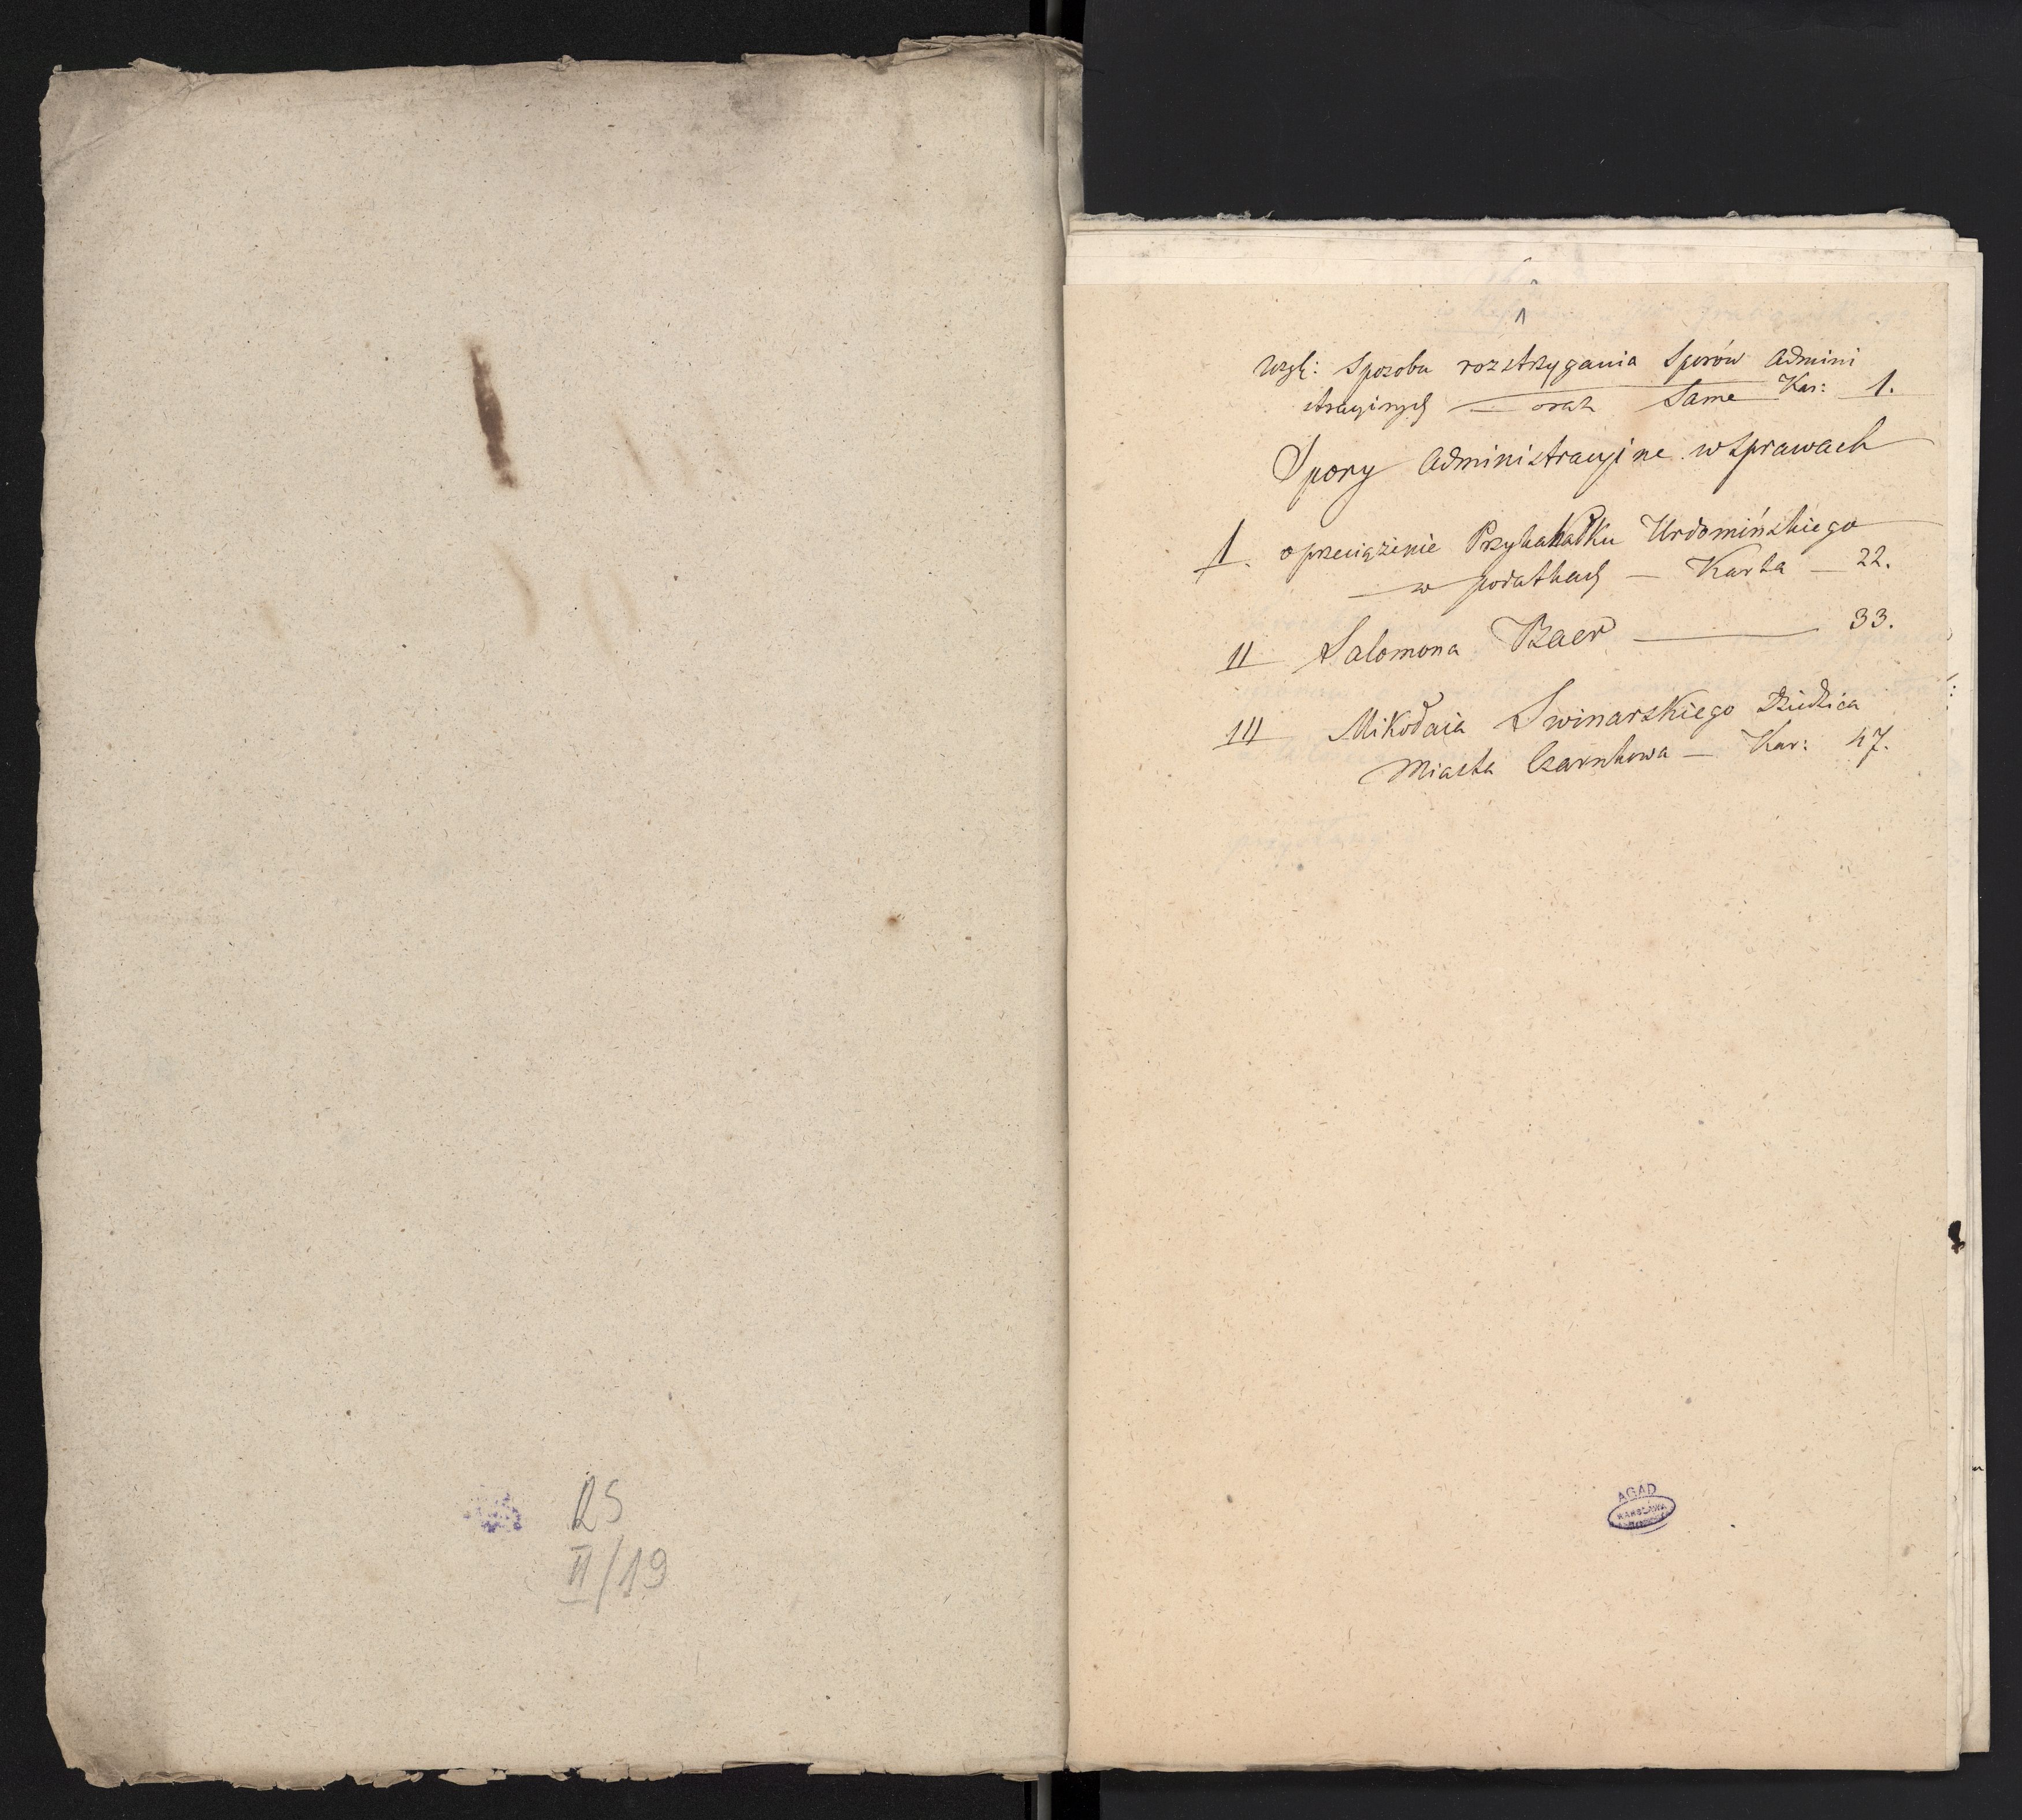 RS
II/19
1
Wzgl: Sposobu rozstrzygania Sporów admini
stracyinych — oraz Same Kar: 1.
Spory administracyine w sprawach
I. o przeciążenie Urdomińskiego
w podatkach — Karta — 22.
II Salomona Baer — 33.
III Mikołaia Swinarskiego Dziedzica
Miasta Czarnkowa — Kar: 47.
AGAD
WARSZAWA